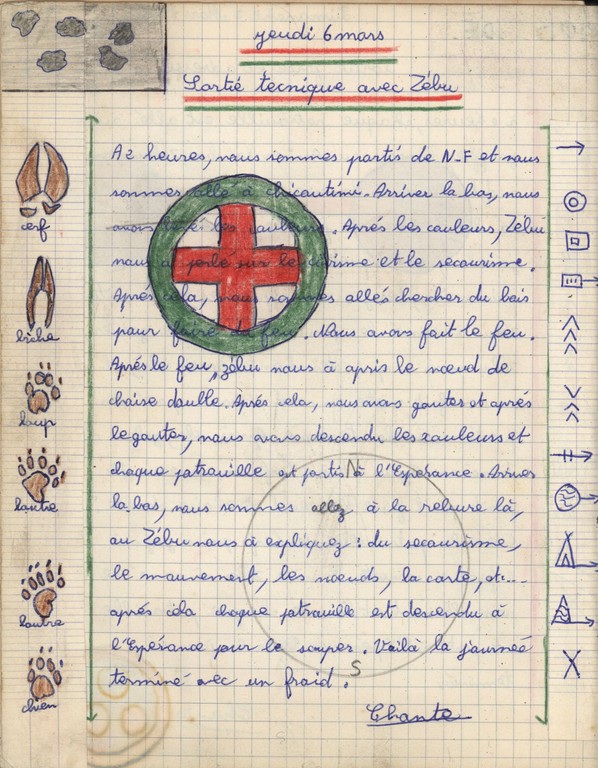 jeudi 6 mars
Sortié tecnique avec Zébu
A 2 heures, nous sommes partis de N-F et nous
sommes allé à chicoutimi. Arriver la bas, nous
avons levé les couleurs. Aprés les couleurs, Zébu
nous a parlé sur le civisme et le secourisme.
Aprés cela, nous sommes allés chercher du bois
pour faire du feu. Nous avons fait le feu.
Aprés le feu, zébu nous à apris le nœud de
chaise daullé. Aprés cela, nous avons gouter et aprés
le gouter, nous avons descendu les couleurs et
chaque patrouille est partis à l'Espérance. Arriver
la bas, nous sommes allez à la
au Zébu nous à expliquez : du secourisme,
le mouvement, les nœuds, la carte, etc...
aprés cela chaque patrouille est descendu à
l'Espérance pour le souper. Voilà la journeé
terminé avec un froid.
Chante
cerf
biche
loup
loutre
loutre
chien
N
S